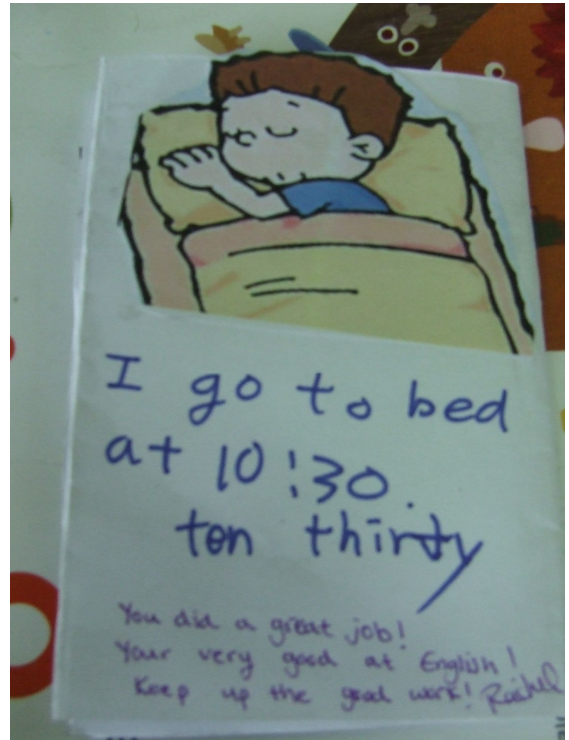 I go to bed
at 10:30.
ten thirty
You did a great job!
Your very good at English!
Keep up the good work! Rachel